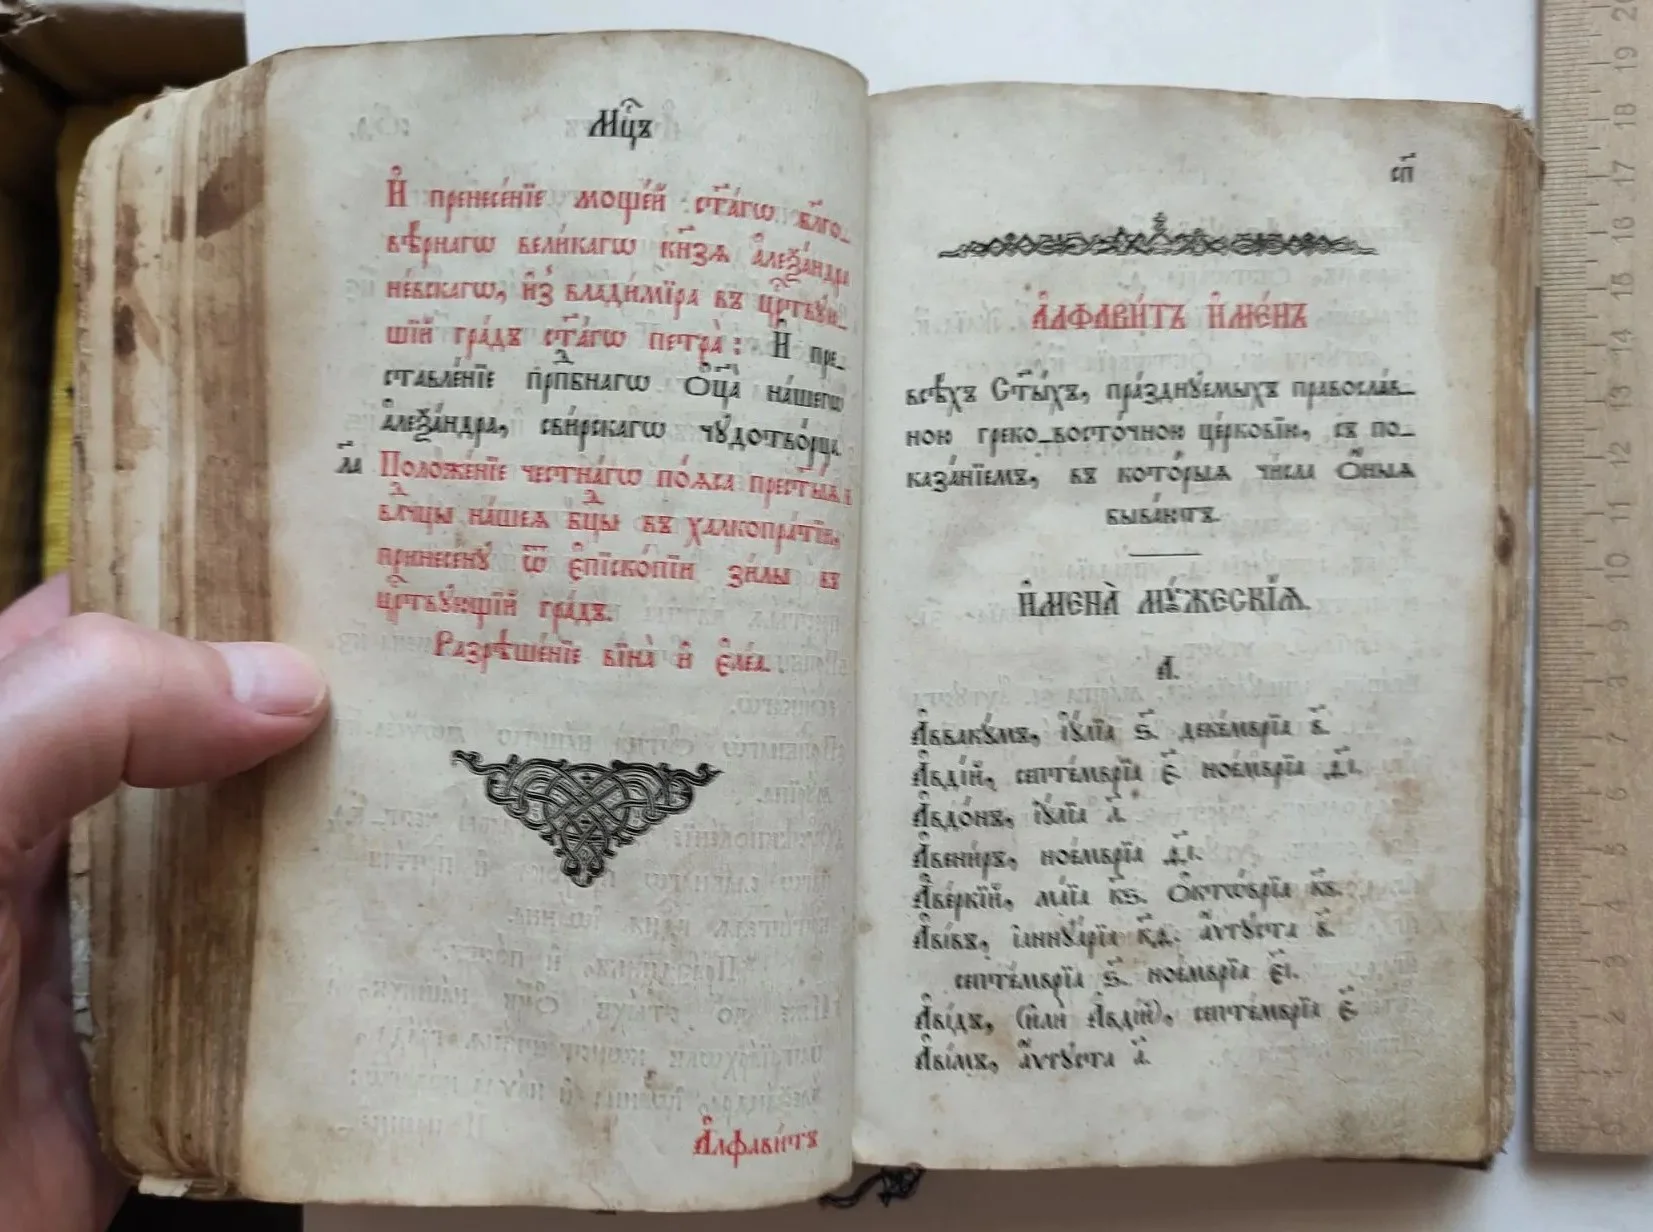 Мцⷭ҇ъ
И҆ пренесе́нїе моще́й ст҃а́гѡ бл҃го-
вѣ́рнагѡ вели́кагѡ кн҃зѧ а҆леѯа́ндра
не́вскагѡ, и҆з̾ влади́мїра въ црⷭ҇твꙋ́ю-
щїй гра́дъ ст҃а́гѡ петра̀: И҆ пре-
ставле́нїе прпⷣбнагѡ Ѻ҆ц҃а̀ на́шегѡ
а҆леѯа́ндра, сви́рскагѡ чꙋдотво́рца.
л҃а Положе́нїе честна́гѡ по́ѧса прест҃ы́ѧ
влⷣчцы на́шеѧ бцⷣы въ халкопра́тїи,
принесенꙋ̀ ѿ є҆пїско́пїи зи́лы въ
црⷭ҇твꙋ́ющїй гра́дъ.
Разрѣше́нїе вїна̀ и҆ є҆ле́а.
А҆лфави́тъ
сп҃
А҆ЛФАВИ́ТЪ И҆МЕ́НЪ
всѣ́хъ Ст҃ы́хъ, пра́зднꙋемыхъ правосла́в-
ною греко-восто́чною це́рковїю, съ по-
каза́нїемъ, въ кото́рыѧ чи́сла Ѻ҆́ныѧ
быва́ютъ.
И҆МЕНА̀ МꙊ́ЖЕСКІѦ.
А.
А҆ввакꙋ́мъ, і҆ꙋ́лїа ѕ҃. деке́мврїа в҃.
А҆вді́й, септе́мврїа є҃. ное́мврїа д҃і.
А҆вдо́нъ, і҆ꙋ́лїа л҃.
А҆вени́ръ, ное́мврїа д҃і.
А҆ве́ркїй, ма́їа к҃ѕ. Ѻ҆ктѡ́врїа к҃в.
А҆ві́въ, і҆аннꙋа́рїа к҃д. а҆́ѵгꙋста в҃.
септе́мврїа ѕ҃. ное́мврїа є҃і.
А҆ві́дъ, (и҆лѝ А҆вді́й), септе́мврїа є҃.
А҆ві́мъ, а҆́ѵгꙋста а҃.